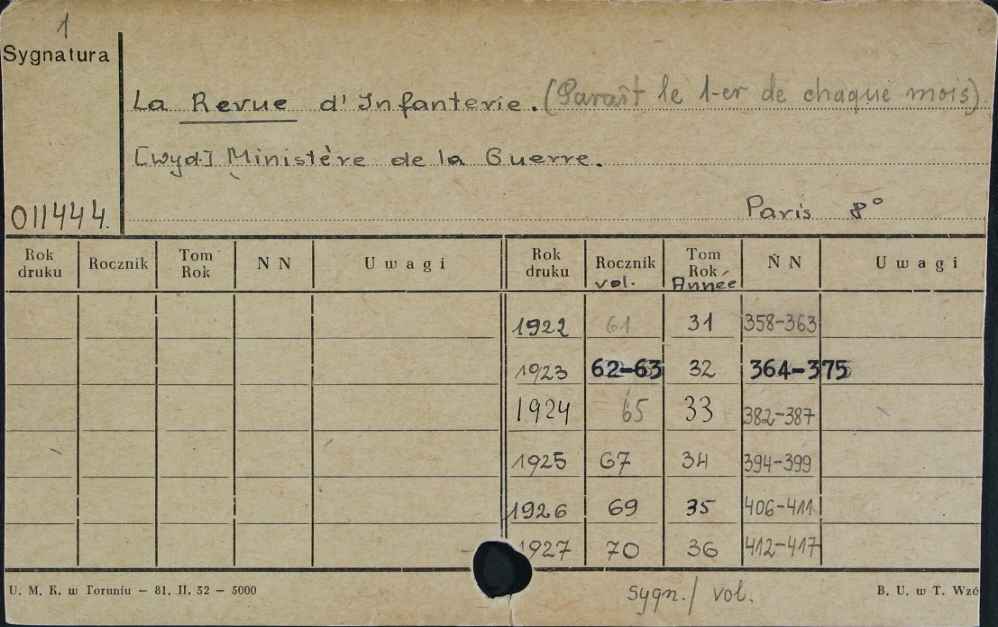 1
Sygnatura
La Revue d'Infanterie. (Paraît le 1-er de chaque mois)
[wyd.] Ministère de la Guerre.
011444.
Paris 8°
Rok druku Rocznik Tom Rok N N Uwagi Rok druku Rocznik vol. Tom Rok Année N N Uwagi
1922 61 31 358-363
1923 62-63 32 364-375
1924 65 33 382-387
1925 67 34 394-399
1926 69 35 406-411
1927 70 36 412-417
U. M. K. w Toruniu – 81. II. 52 – 5000
sygn./ vol.
B. U. w T. Wzó